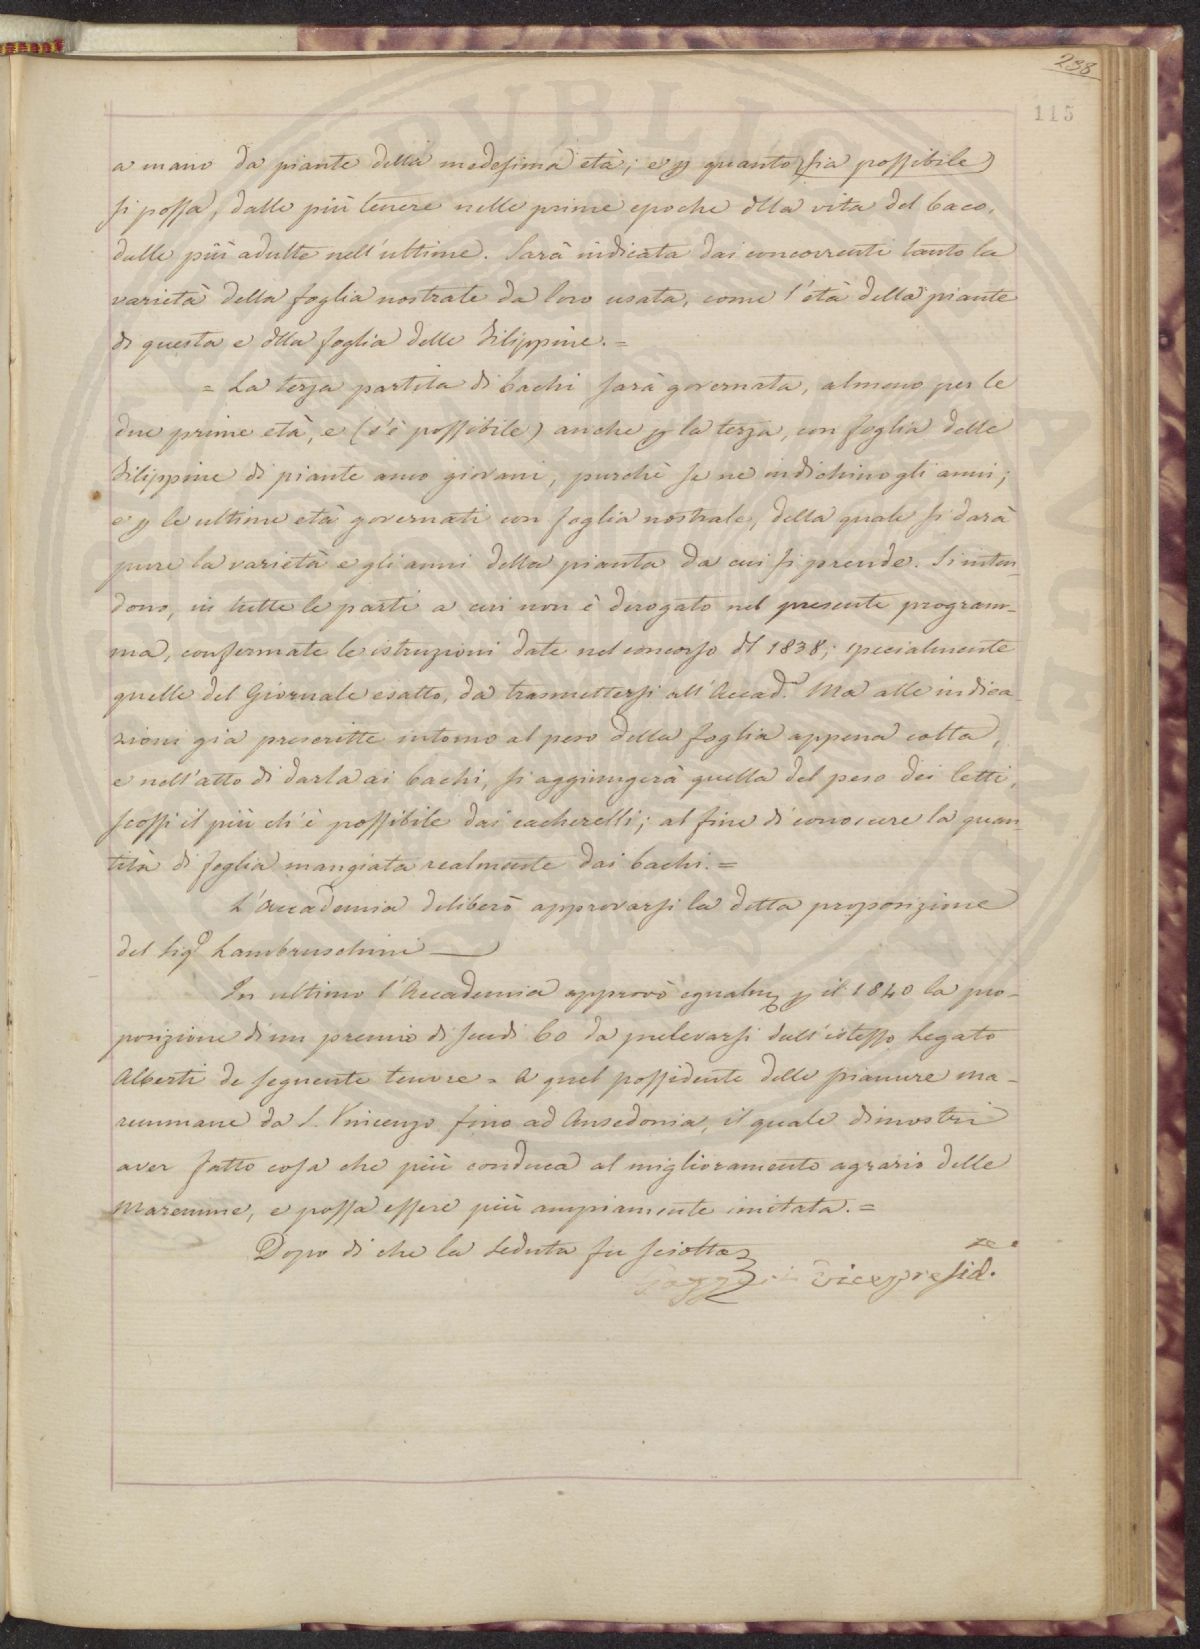 238
115
a mano da piante della medesima età; e p quanto (sia possibile)
si possa, dalle più tenere nelle prime epoche dlla vita del baco,
dalle più adulte nell'ultime. Sarà indicata dai concorrenti tanto la
varietà della foglia nostrale da loro usata, come l'età della piante
di questa e dlla foglia delle Filippine.=
= La terza partita di bachi sarà governata, almeno per le
due prime età, e (s'è possibile) anche p la terza, con foglia delle
Filippine di piante anco giovani, purchè se ne indichino gli anni;
e p le ultime età governati con foglia nostrale, della quale si darà
pure la varietà e gli anni della pianta da cui si prende. S'inten-
dono, in tutte le parti a cui non è derogato nel presente program-
ma, confermate le istruzioni date nel concorso dl 1838; specialmente
quelle del Giornale esatto, da trasmettersi all'Accad.a Ma alle indica-
zioni già prescritte intorno al peso della foglia appena colta,
e nell'atto di darla ai bachi, si aggiungerà quella del peso dei letti,
scossi il più ch'è possibile dai cacherelli; al fine di conoscere la quan-
tità di foglia mangiata realmente dai bachi.=
L'Accademia deliberò approvarsi la detta proposizione
del Sigr Lambruschini —
In ultimo l'Accademia approvò egualm p il 1840 la pro-
posizione di un premio di scudi 60 da prelevarsi dall'istesso Legato
Alberti de seguente tenore = A quel possidente delle pianure ma-
remmane da S. Vincenzo fino ad Ansedonia, il quale dimostri
aver fatto cosa che più conduca al miglioramento agrario delle
Maremme, e possa essere più ampiamente imitata.=
Dopo di che la seduta fu sciolta
Vicepresid.te